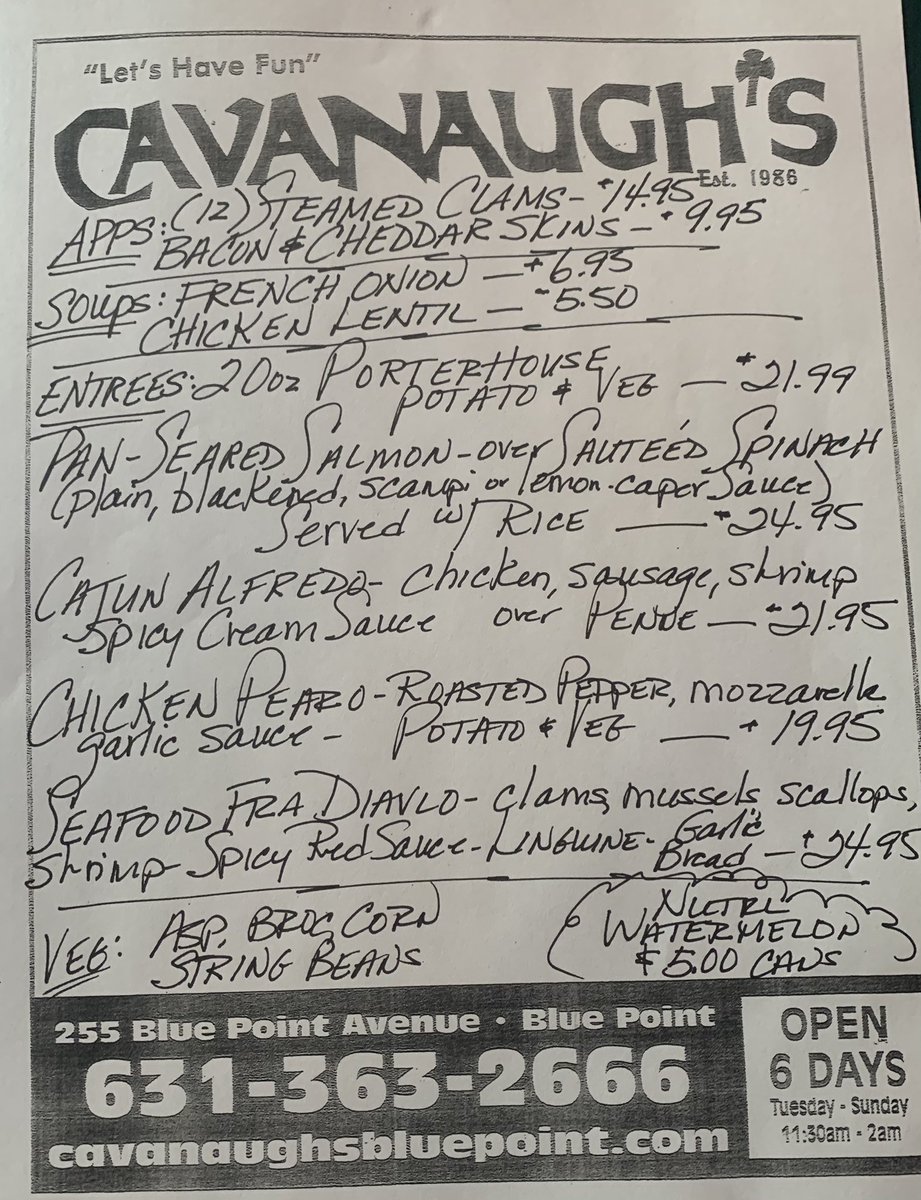 "Let's Have Fun"
CAVANAUGH'S
Est. 1986
APPS: (12) STEAMED CLAMS - $14.95
BACON & CHEDDAR SKINS - $9.95
SOUPS: FRENCH ONION - $6.95
CHICKEN LENTIL - $5.50
ENTREES: 20oz PORTERHOUSE
POTATO & VEG - $21.99
PAN-SEARED SALMON - over SAUTEÉD SPINACH
(plain, blackened, scampi or lemon-caper Sauce)
Served w/ RICE - $24.95
CAJUN ALFREDO - chicken, sausage, shrimp
SPICY Cream Sauce over PENNE - $21.95
CHICKEN PEARO - ROASTED PEPPER, mozzarella
garlic sauce - POTATO & VEG - $19.95
SEAFOOD FRA DIAVLO - clams, mussels, scallops,
shrimp - Spicy Red Sauce - LINGUINE - Garlic
Bread - $24.95
VEG: ASP. BROC, CORN
STRING BEANS
NUTRL
WATERMELON
$5.00 CANS
255 Blue Point Avenue • Blue Point
631-363-2666
cavanaughsbluepoint.com
OPEN
6 DAYS
Tuesday - Sunday
11:30am - 2am